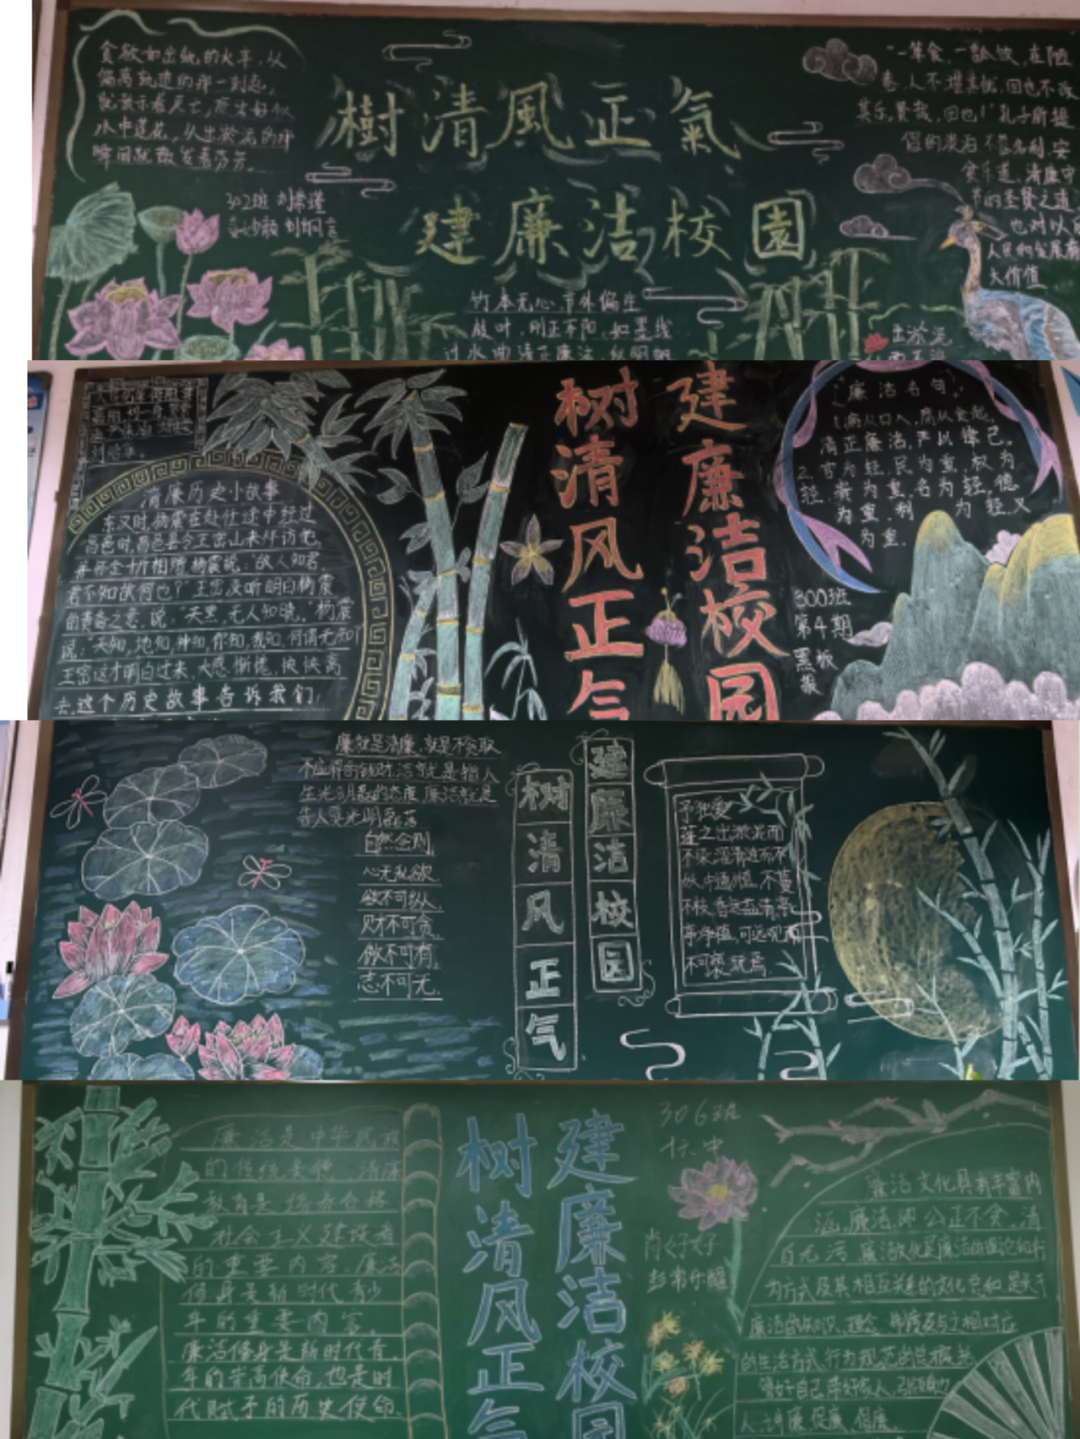 贪欲如出轨的火车，从
偏离轨道的那一刻起，
水中莲花，从出淤泥的
瞬间就散发着芬芳。
302班
樹清風正氣
建廉洁校園
竹本无心，节外偏生
枝叶，刚正不阿，如墨线
"一箪食，一瓢饮，在陋
巷，人不堪其忧，回也不改
其乐，贤哉，回也！"孔子所提
食乐道，清廉守
也对以
人民的发展有
大价值
出淤泥
清廉历史小故事
东汉时，杨震在赴任途中经过
昌邑时，昌邑县令王密山来拜访他，
并怀金十斤相赠，杨震说：故人知君，
君不知故人何也？王密没听明白杨震
的责备之意，说：天黑，无人知晓。杨震
说：天知，地知，神知，你知，我知，何谓无知
王密这才明白过来，大感惭愧，怏怏离
去，这个历史故事告诉我们：
树清风正气
建廉洁校园
廉洁名句
病从口入，腐从贪起。
清正廉洁，严以律己。
之官为轻，民为重，权为
轻，责为重，名为轻，德
为重，利为轻，义
为重。
300班
第4期
黑板
报
廉就是清廉，就是不贪取
不应得的钱财，洁就是指人
生光明磊落的态度，廉洁就是
自然会则，
心无私欲
欲不可纵，
财不可贪，
做不可有，
志不可无，
树清风正气
建廉洁校园
予独爱
莲之出淤泥而
不染，濯清涟而不
妖，中通外直，不蔓
不枝，香远益清，亭
亭净植，可远观而
不可亵玩焉
廉洁是中华民族
的传统美德，清廉
教育是培养合格
社会主义建设者
的重要内容，廉洁
修身是新时代青少
年的重要内容，
廉洁修身是新时代青
年的崇高使命，也是时
代赋予的历史使命
树清风正气
建廉洁校园
306班
肖好好
廉洁文化具有丰富内
涵，廉洁即公正不贪，清
白无污，廉洁文化是廉洁的理论和行
为方式及其相互关系的文化总和，是关于
廉洁的知识、理念、制度及与之相对应
的生活方式、行为规范的总概括
做好自己，带好家人，
人讲廉、促廉、倡廉